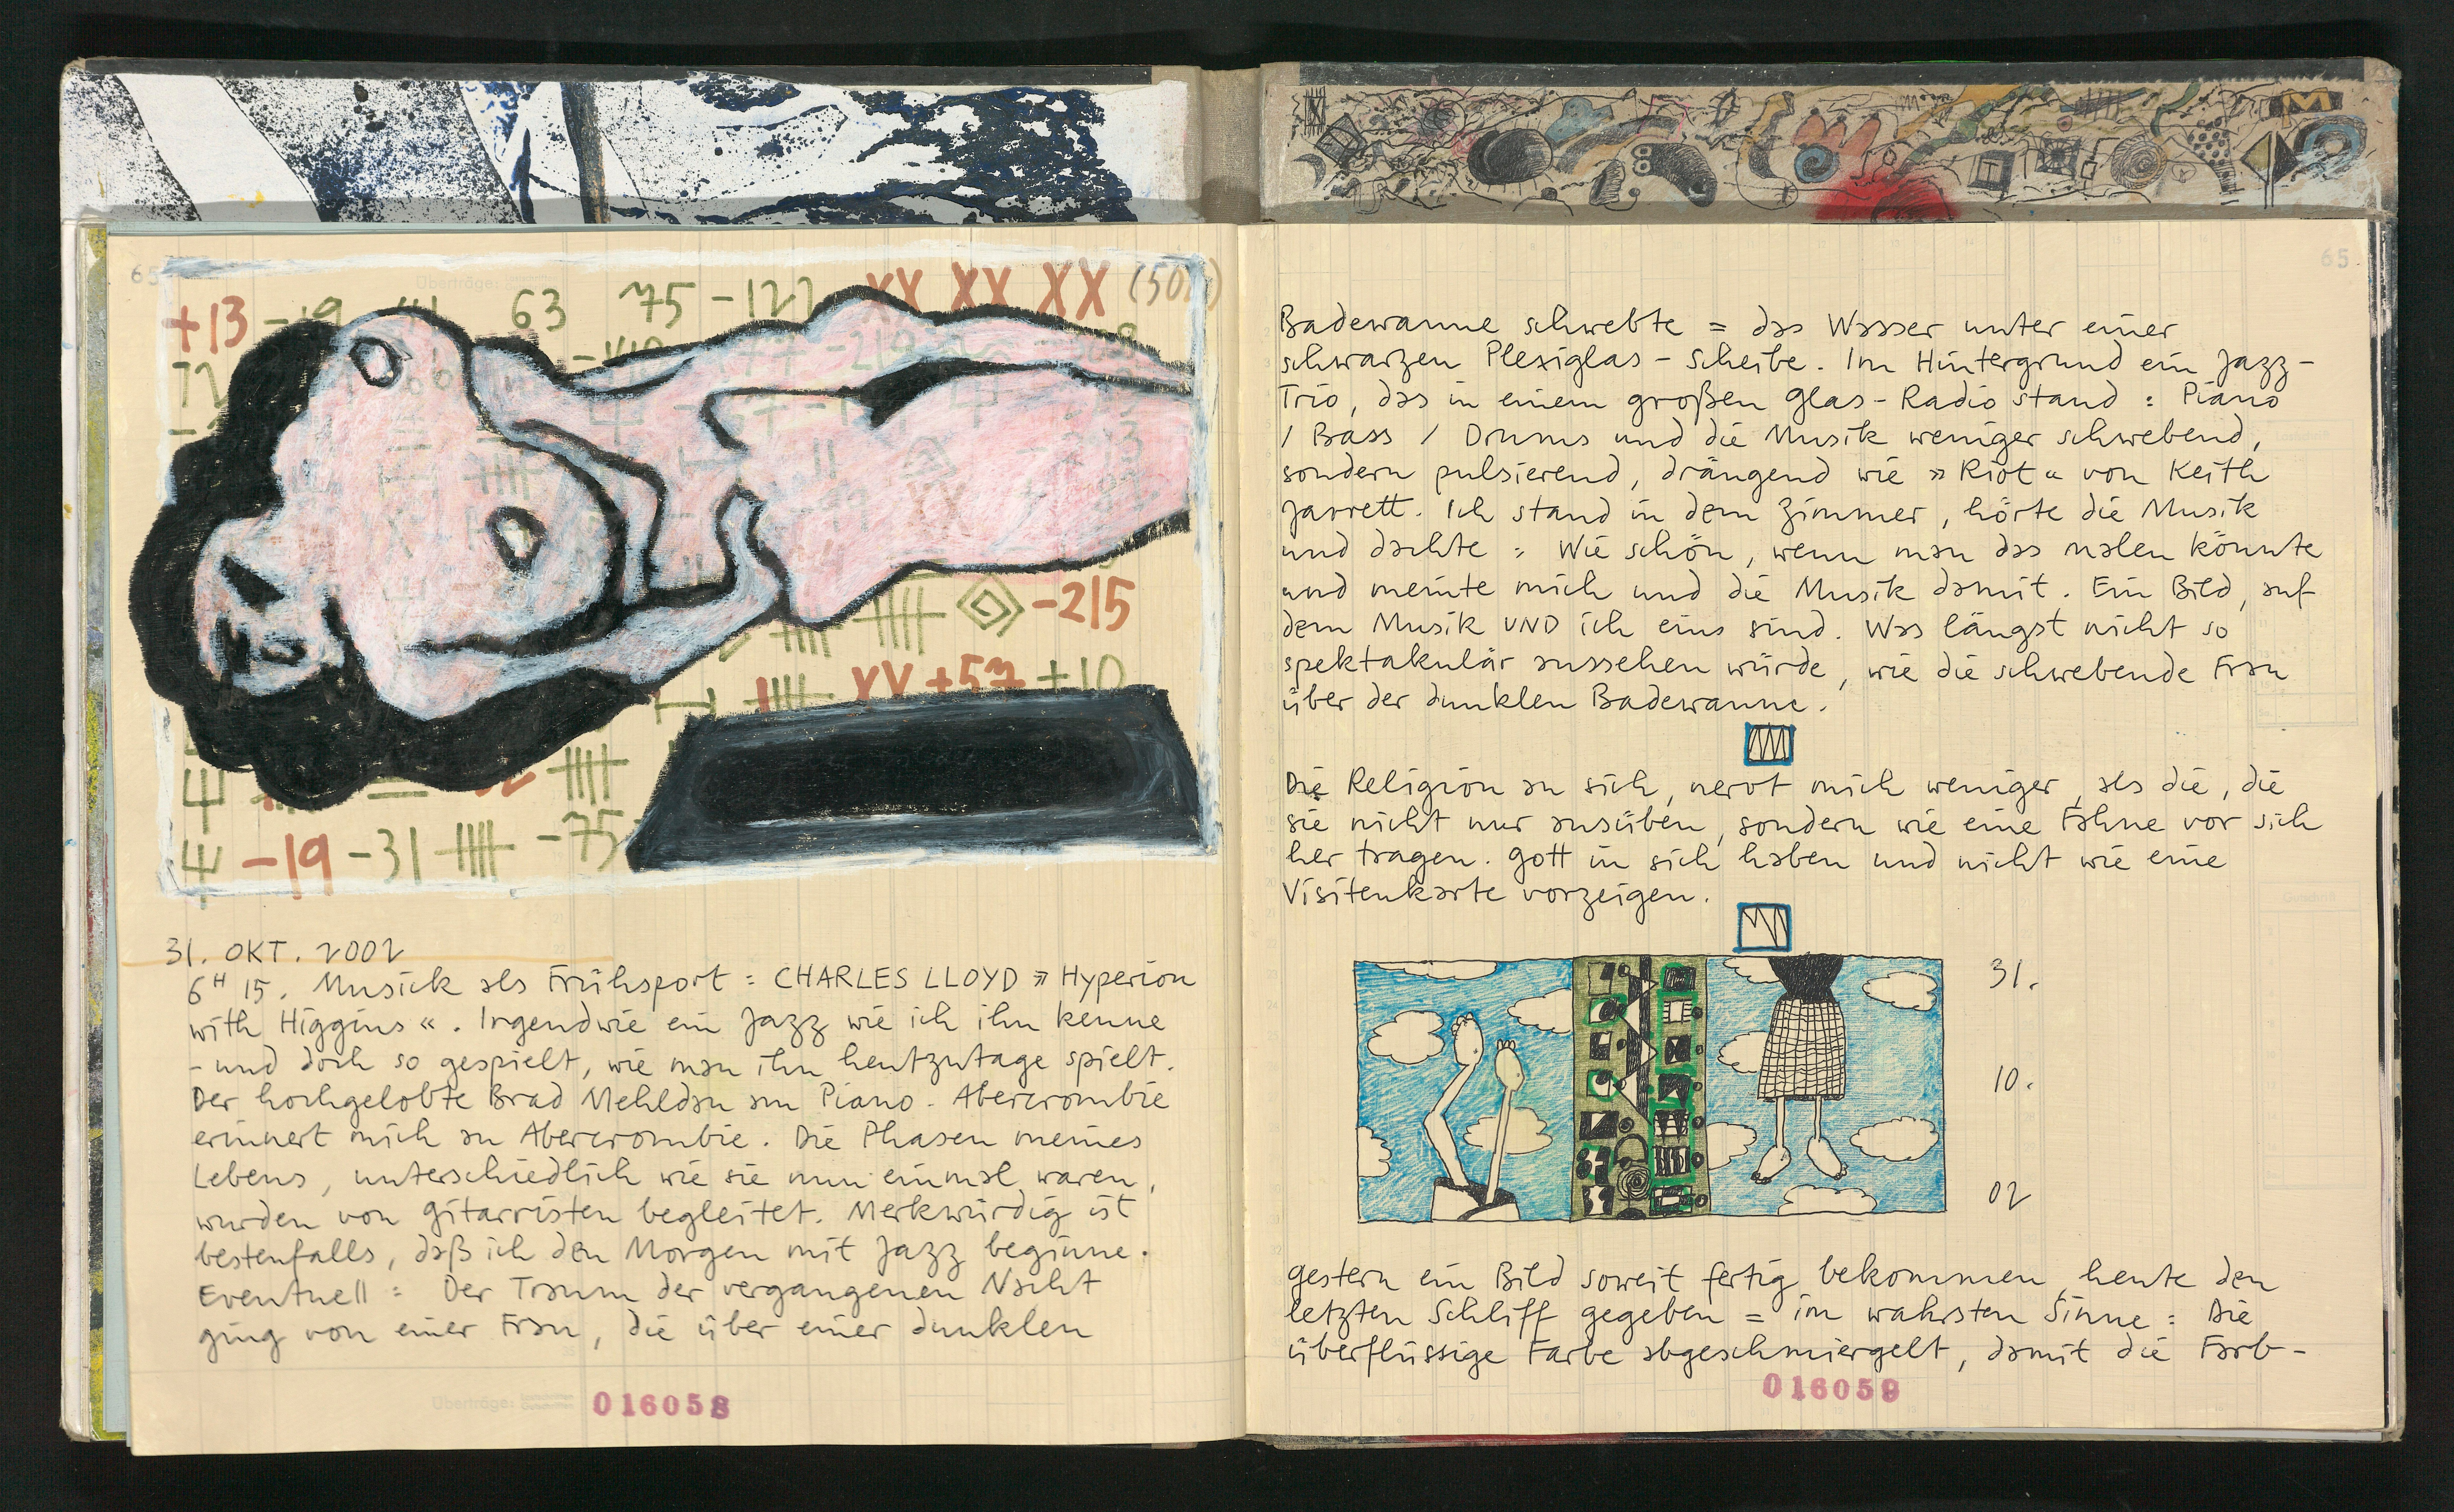 65
Überträge:
+13 -19 63 75 -122 XX XX XX (50
72
-215
XX +57 +10
-19 -31 -75
31. OKT. 2002
6H 15. Musick als Frühsport = CHARLES LLOYD » Hyperion
with Higgins «. Irgendwie ein Jazz wie ich ihn kenne
- und doch so gespielt, wie man ihn heutzutage spielt.
Der hochgelobte Brad Mehldau am Piano. Abercrombie
erinnert mich an Abercrombie. Die Phasen meines
Lebens, unterschiedlich wie sie nun einmal waren,
wurden von Gitarristen begleitet. Merkwürdig ist
bestenfalls, daß ich den Morgen mit Jazz beginne.
Eventuell = Der Traum der vergangenen Nacht
ging von einer Frau, die über einer dunklen
Überträge:
016058
65
Badewanne schwebte = das Wasser unter einer
schwarzen Plexiglas - Scheibe. Im Hintergrund ein Jazz-
Trio, das in einem großen Glas - Radio stand = Piano
/ Bass / Drums und die Musik weniger schwebend,
sondern pulsierend, drängend wie » Riot « von Keith
Jarrett. Ich stand in dem Zimmer, hörte die Musik
und dachte = Wie schön, wenn man das malen könnte
und meinte mich und die Musik damit. Ein Bild, auf
dem Musik UND ich eins sind. Was längst nicht so
spektakulär aussehen würde, wie die schwebende Frau
über der dunklen Badewanne.
Die Religion an sich, nervt mich weniger, als die, die
sie nicht nur ausüben, sondern wie eine Fahne vor sich
her tragen. Gott in sich haben und nicht wie eine
Visitenkarte vorzeigen.
31.
10.
02
Gestern ein Bild soweit fertig bekommen, heute den
letzten Schliff gegeben = im wahrsten Sinne = Die
überflüssige Farbe abgeschmiergelt, damit die Farb-
016059